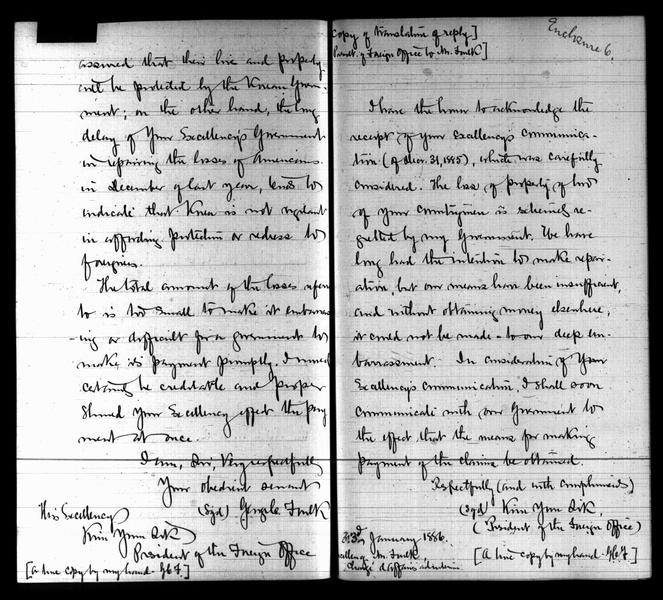 assured that their live and property
will be protected by the Korean Govern-
ment; on the other hand, the long
delay of Your Excellency's Government
in repairing the losses of Americans
in December of last year, tends to
indicate that Korea is not vigilant
in affording protection or redress to
foreigners.
The total amount of the losses refer
to is too small to make it embarrass
-ing or difficult for a government to
make its payment promptly. I
certainly be creditable and proper
should your Excellency effect the pay
ment at once.
I am, Sir, Very respectfully
Your obedient servant
(Sgd) George C. Foulk
His Excellency
Kim Yun Sik
President of the Foreign Office
[A true copy by my hand. G.C.F.]
Enclosure 6.
Copy of translation of reply]
of Foreign Office to Mr. Foulk]
I have the honor to acknowledge the
receipt of your excellency's communica-
tion (of Dec. 31, 1885), which was carefully
considered. The loss of property of two
of your countrymen is extremely re-
gretted by my Government. We have
long had the intention to make repar-
ation, but our means have been insufficient,
and without obtaining money elsewhere,
it could not be made - to our deep em-
barrassment. In consideration of Your
Excellency's communication, I shall soon
communicate with our Government to
the effect that the means for making
payment of the claims be obtained.
Respectfully (and with compliments)
(sgd) Kim Yun Sik,
(President of the Foreign Office)
23d January 1886.
Mr. Foulk,
Chargé d'affaires ad interim
[A true copy by my hand G.C.F.]